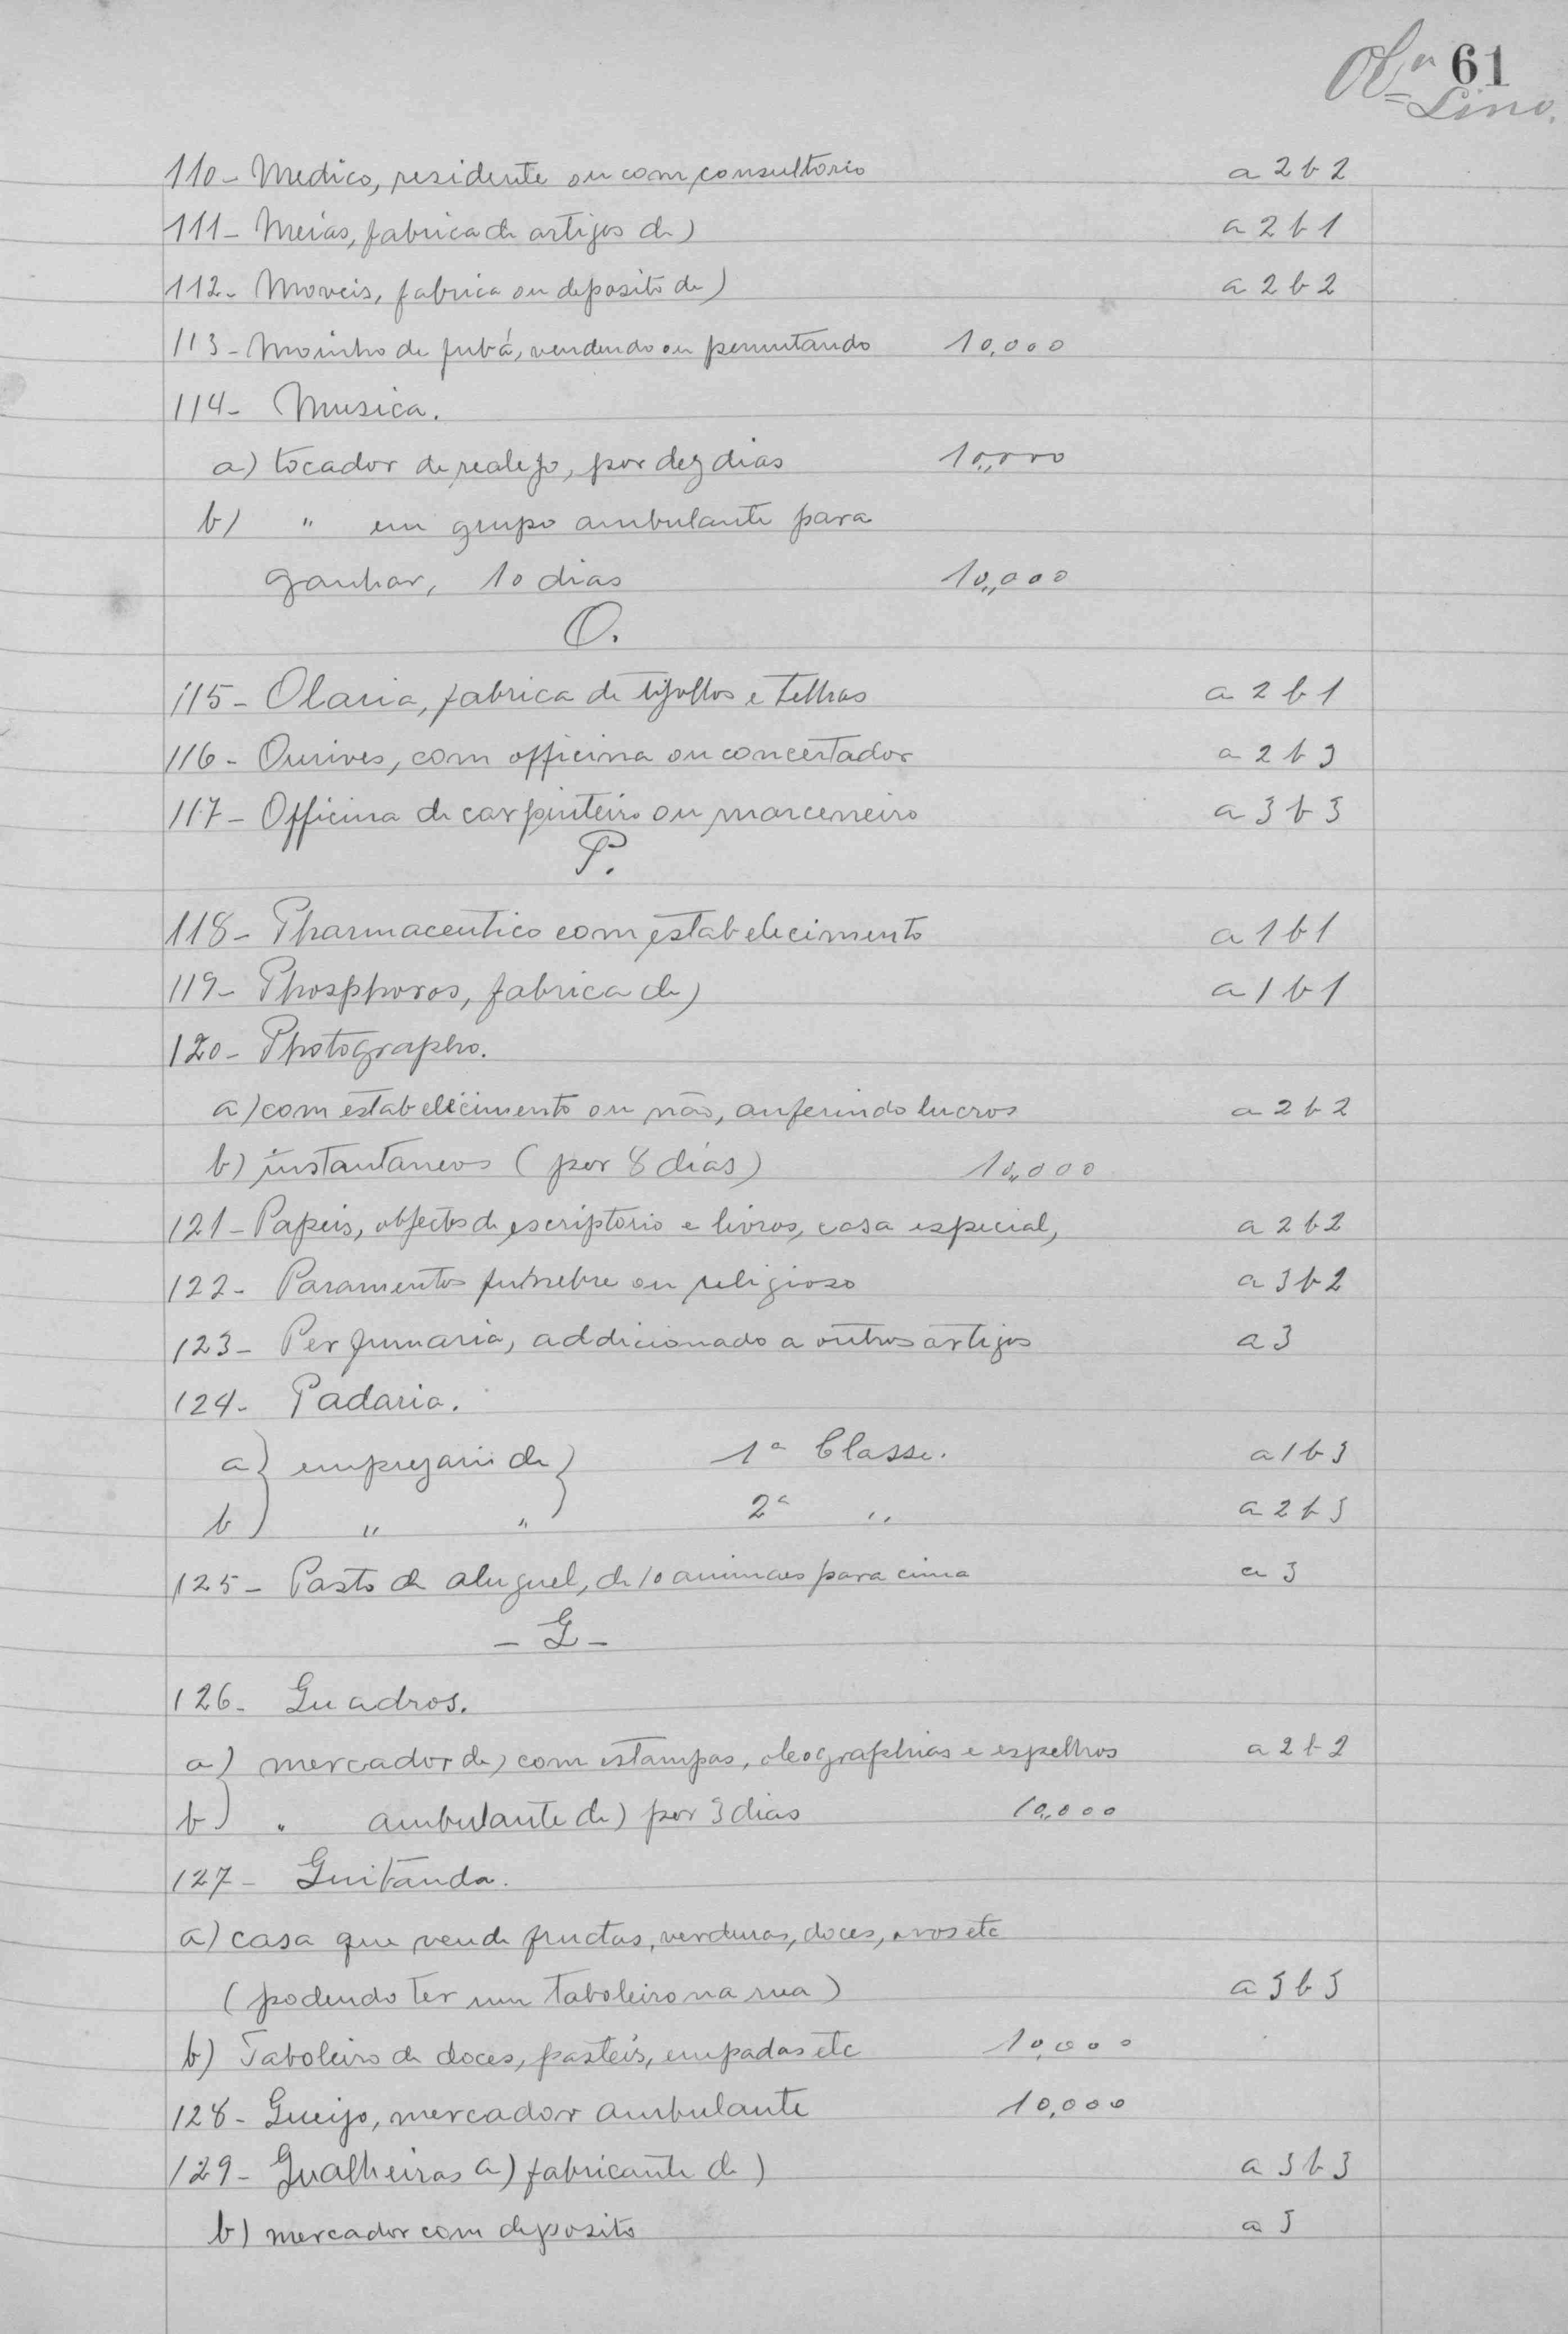 61
Lino.
110- Medico, residente ou com consultorio a 2 b 2
111- Meias, fabrica de artigos de) a 2 b 1
112- Moveis, fabrica ou deposito de) a 2 b 2
113- Moinho de fubá, vendendo ou permutando 10,000
114- Musica.
a) tocador de realejo, por dez dias 10,,000
b) " em grupo ambulante para
ganhar, 10 dias 10,,000
O.
115- Olaria, fabrica de tijollos e telhas a 2 b 1
116- Ourives, com officina ou concertador a 2 b 3
117- Officina de carpinteiro ou marceneiro a 3 b 3
P.
118- Pharmaceutico com estabelecimento a 1 b 1
119- Phosphoros, fabrica de) a 1 b 1
120- Photographo.
a) com estabelecimento ou não, auferindo lucros a 2 b 2
b) instantaneos (por 8 dias) 10,,000
121- Papeis, objectos de escriptorio e livros, casa especial, a 2 b 2
122- Paramentos funebre ou religioso a 3 b 2
123- Perfumaria, addicionado a outros artigos a 3
124- Padaria.
a} empregario de} 1ª Classe. a 1 b 3
b) " " 2ª " a 2 b 3
125- Pasto de aluguel, de 10 animaes para cima a 3
- Q -
126- Quadros.
a) mercador de) com estampas, oleographias e espelhos a 2 b 2
b) " ambulante de) por 3 dias 10,,000
127- Quitanda.
a) casa que vende fructas, verduras, doces, ovos etc
(podendo ter um taboleiro na rua) a 3 b 3
b) Taboleiro de doces, pasteis, empadas etc 10,000
128- Queijo, mercador ambulante 10,000
129- Qualheiras a) fabricante de) a 3 b 3
b) mercador com deposito a 3